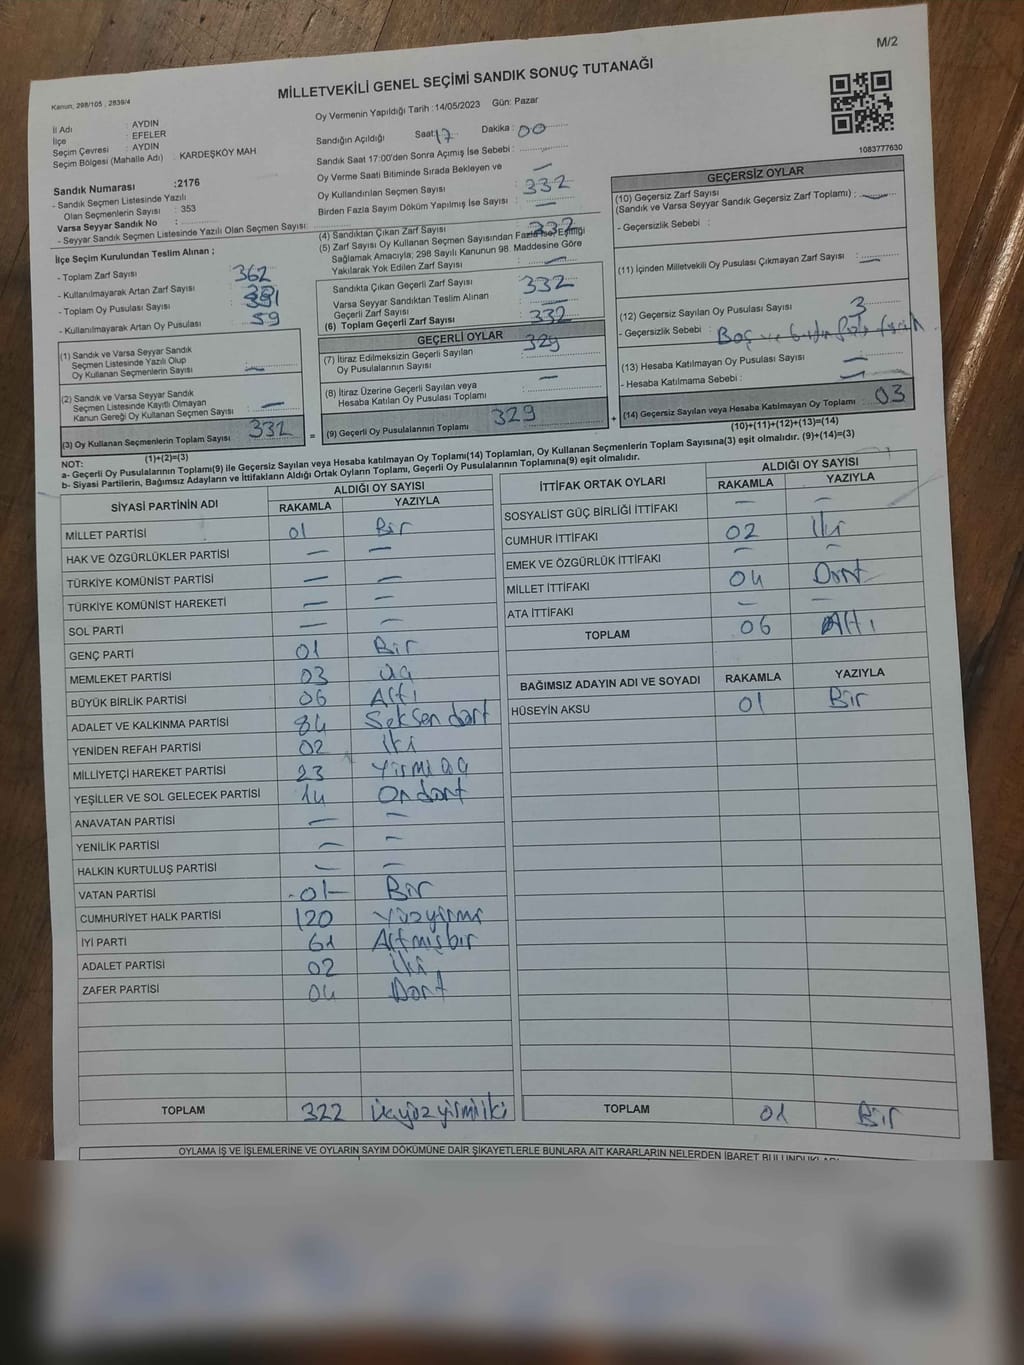 M/2
MİLLETVEKİLİ GENEL SEÇİMİ SANDIK SONUÇ TUTANAĞI
Kanun, 298/105 , 2839/4
İl Adı : AYDIN
İlçe : EFELER
Seçim Çevresi : AYDIN
Seçim Bölgesi (Mahalle Adı) : KARDEŞKÖY MAH
Sandık Numarası :2176
- Sandık Seçmen Listesinde Yazılı
Olan Seçmenlerin Sayısı : 353
Varsa Seyyar Sandık No :
- Seyyar Sandık Seçmen Listesinde Yazılı Olan Seçmen Sayısı:
Oy Vermenin Yapıldığı Tarih :14/05/2023 Gün: Pazar
Sandığın Açıldığı Saat: 17 Dakika : 00
Sandık Saat 17:00'den Sonra Açımış İse Sebebi :
Oy Verme Saati Bitiminde Sırada Bekleyen ve
Oy Kullandırılan Seçmen Sayısı : —
Birden Fazla Sayım Döküm Yapılmış İse Sayısı : —
332
1083777630
İlçe Seçim Kurulundan Teslim Alınan ;
- Toplam Zarf Sayısı : 362
- Kullanılmayarak Artan Zarf Sayısı :
- Toplam Oy Pusulası Sayısı : 391
- Kullanılmayarak Artan Oy Pusulası : 59
(1) Sandık ve Varsa Seyyar Sandık
Seçmen Listesinde Yazılı Olup
Oy Kullanan Seçmenlerin Sayısı : —
(2) Sandık ve Varsa Seyyar Sandık
Seçmen Listesinde Kayıtlı Olmayan
Kanun Gereği Oy Kullanan Seçmen Sayısı : —
(3) Oy Kullanan Seçmenlerin Toplam Sayısı : 332
(1)+(2)=(3)
(4) Sandıktan Çıkan Zarf Sayısı : 332
(5) Zarf Sayısı Oy Kullanan Seçmen Sayısından Fazla ise, Eşitliği
Sağlamak Amacıyla; 298 Sayılı Kanunun 98. Maddesine Göre
Yakılarak Yok Edilen Zarf Sayısı : —
Sandıkta Çıkan Geçerli Zarf Sayısı : 332
Varsa Seyyar Sandıktan Teslim Alınan
Geçerli Zarf Sayısı : —
(6) Toplam Geçerli Zarf Sayısı : 332
GEÇERLİ OYLAR
(7) İtiraz Edilmeksizin Geçerli Sayılan
Oy Pusulalarının Sayısı : 329
(8) İtiraz Üzerine Geçerli Sayılan veya
Hesaba Katılan Oy Pusulası Toplamı : —
= (9) Geçerli Oy Pusulalarının Toplamı : 329 +
GEÇERSİZ OYLAR
(10) Geçersiz Zarf Sayısı
(Sandık ve Varsa Seyyar Sandık Geçersiz Zarf Toplamı) : —
- Geçersizlik Sebebi :
(11) İçinden Milletvekili Oy Pusulası Çıkmayan Zarf Sayısı : —
(12) Geçersiz Sayılan Oy Pusulası Sayısı : 3
- Geçersizlik Sebebi : Boş ve
(13) Hesaba Katılmayan Oy Pusulası Sayısı : —
- Hesaba Katılmama Sebebi : —
(14) Geçersiz Sayılan veya Hesaba Katılmayan Oy Toplamı : 03
(10)+(11)+(12)+(13)=(14)
NOT:
a- Geçerli Oy Pusulalarının Toplamı(9) ile Geçersiz Sayılan veya Hesaba katılmayan Oy Toplamı(14) Toplamları, Oy Kullanan Seçmenlerin Toplam Sayısına(3) eşit olmalıdır. (9)+(14)=(3)
b- Siyasi Partilerin, Bağımsız Adayların ve İttifakların Aldığı Ortak Oyların Toplamı, Geçerli Oy Pusulalarının Toplamına(9) eşit olmalıdır.
SİYASİ PARTİNİN ADI ALDIĞI OY SAYISI
RAKAMLA YAZIYLA
MİLLET PARTİSİ 01 Bir
HAK VE ÖZGÜRLÜKLER PARTİSİ — —
TÜRKİYE KOMÜNİST PARTİSİ — —
TÜRKİYE KOMÜNİST HAREKETİ — —
SOL PARTİ — —
GENÇ PARTİ 01 Bir
MEMLEKET PARTİSİ 03 Üç
BÜYÜK BİRLİK PARTİSİ 06 Altı
ADALET VE KALKINMA PARTİSİ 84 Seksen dört
YENİDEN REFAH PARTİSİ 02 iki
MİLLİYETÇİ HAREKET PARTİSİ 23 Yirmi üç
YEŞİLLER VE SOL GELECEK PARTİSİ 14 On dört
ANAVATAN PARTİSİ — —
YENİLİK PARTİSİ — —
HALKIN KURTULUŞ PARTİSİ — —
VATAN PARTİSİ -01- Bir
CUMHURİYET HALK PARTİSİ 120 Yüzyirmi
İYİ PARTİ 61 Altmışbir
ADALET PARTİSİ 02 İki
ZAFER PARTİSİ 04 Dört
TOPLAM 322 Üçyüzyirmiiki
İTTİFAK ORTAK OYLARI ALDIĞI OY SAYISI
RAKAMLA YAZIYLA
SOSYALİST GÜÇ BİRLİĞİ İTTİFAKI — —
CUMHUR İTTİFAKI 02 İki
EMEK VE ÖZGÜRLÜK İTTİFAKI — —
MİLLET İTTİFAKI 04 Dört
ATA İTTİFAKI — —
TOPLAM 06 Altı
BAĞIMSIZ ADAYIN ADI VE SOYADI RAKAMLA YAZIYLA
HÜSEYİN AKSU 01 Bir
TOPLAM 01 Bir
OYLAMA İŞ VE İŞLEMLERİNE VE OYLARIN SAYIM DÖKÜMÜNE DAİR ŞİKAYETLERLE BUNLARA AİT KARARLARIN NELERDEN İBARET BULUNDUKLARI